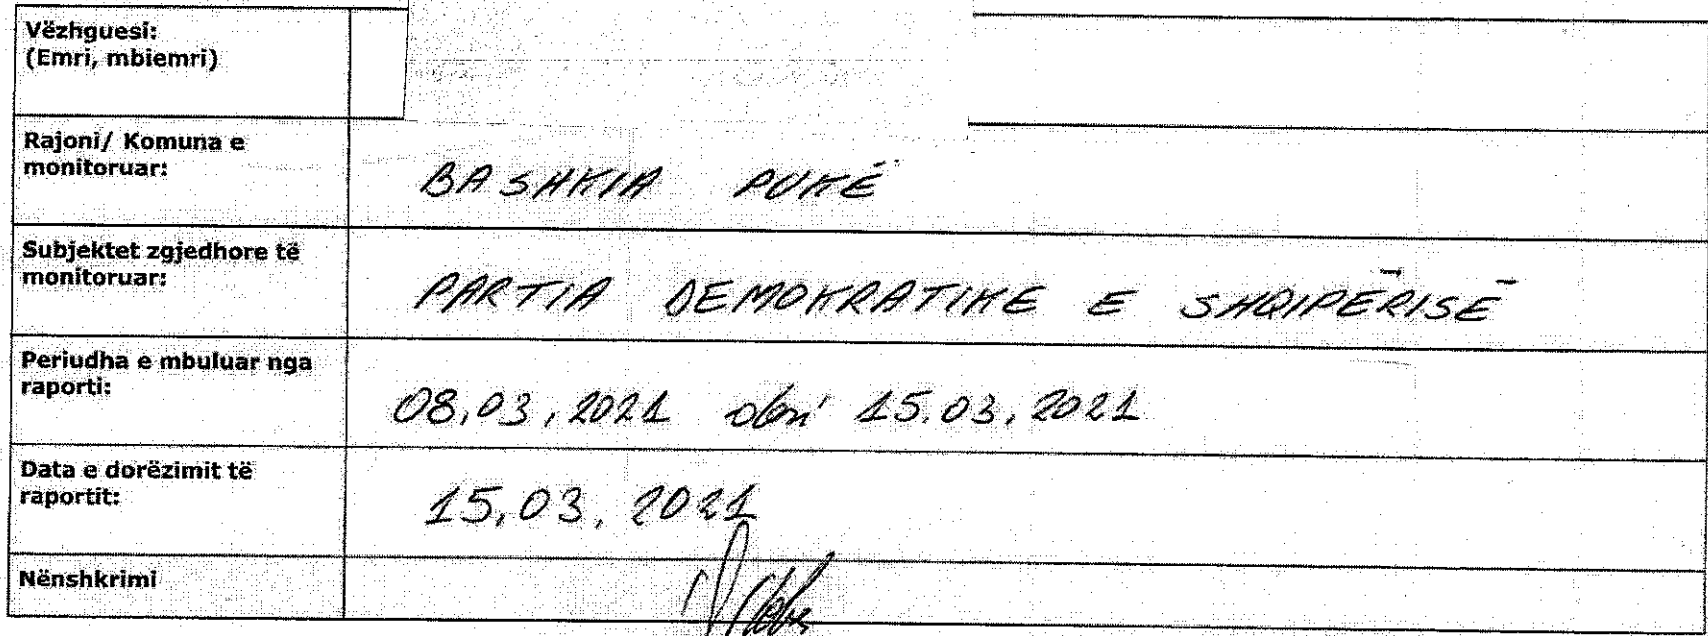 Vëzhguesi:
(Emri, mbiemri)
Rajoni/ Komuna e
monitoruar:
BASHKIA PUKË
Subjektet zgjedhore të
monitoruar:
PARTIA DEMOKRATIKE E SHQIPËRISË
Periudha e mbuluar nga
raporti:
08.03.2021 deri 15.03.2021
Data e dorëzimit të
raportit:
15.03.2021
Nënshkrimi